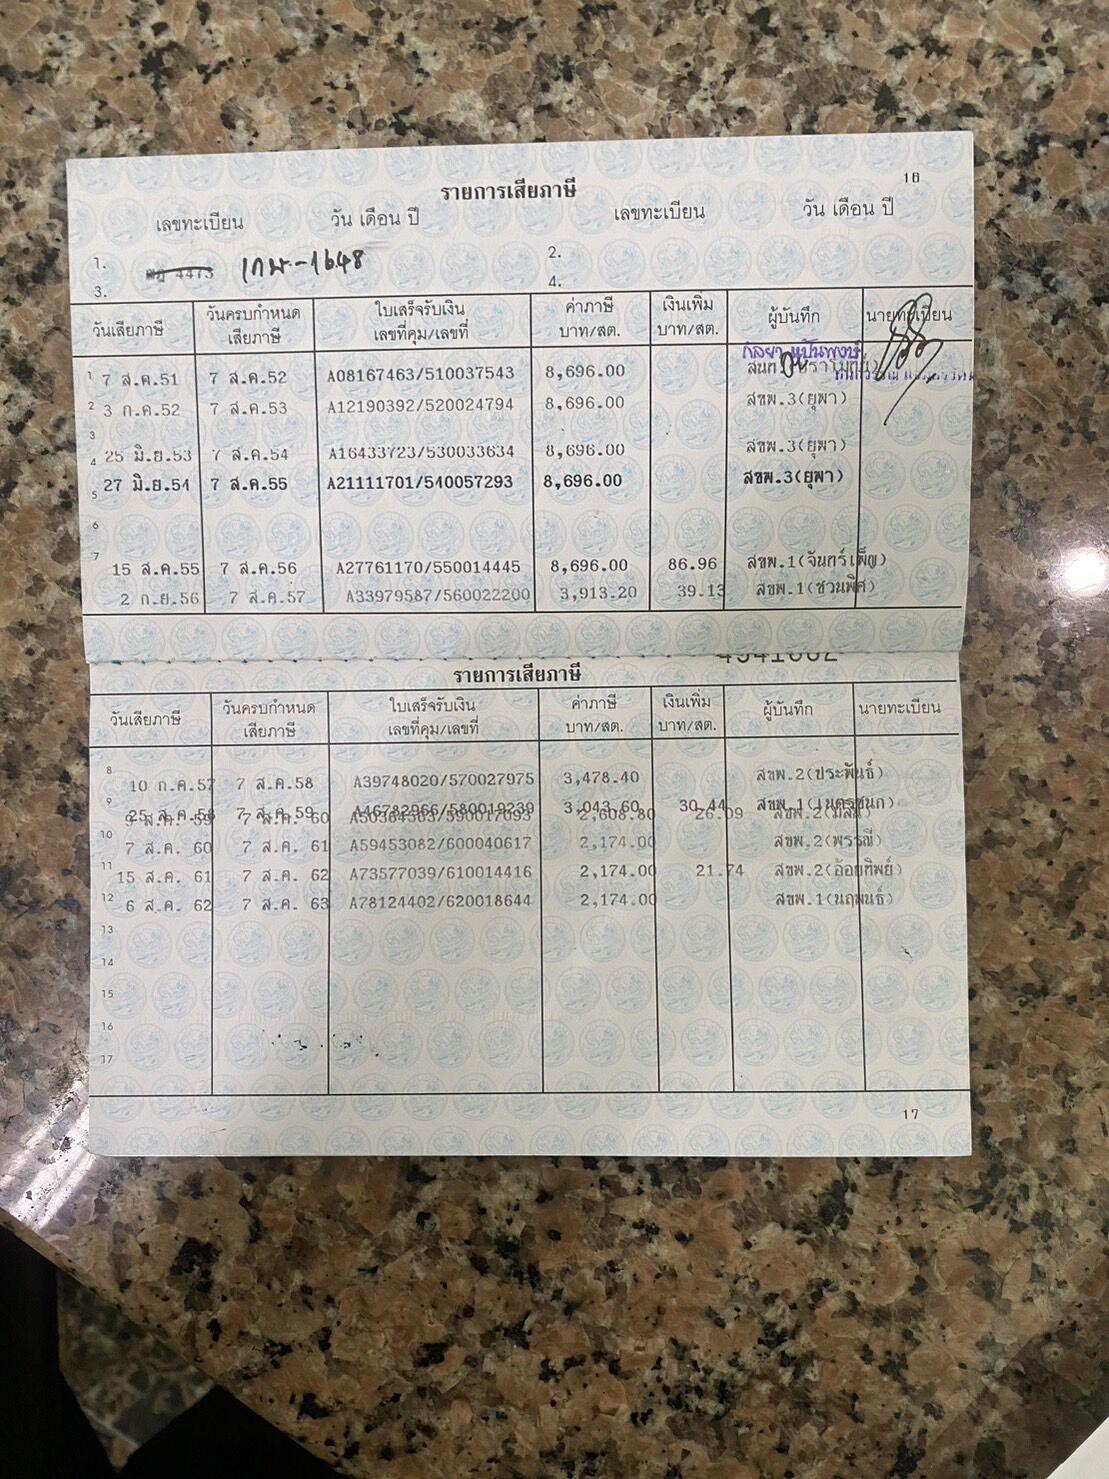 16
รายการเสียภาษี
เลขทะเบียน วัน เดือน ปี เลขทะเบียน วัน เดือน ปี
1. 2.
4473 1648
3. 4.
วันเสียภาษี วันครบกำหนดเสียภาษี ใบเสร็จรับเงิน เลขที่คุม/เลขที่ ค่าภาษี บาท/สต. เงินเพิ่ม บาท/สต. ผู้บันทึก นายทะเบียน
กัลยา
1 7 ส.ค.51 7 ส.ค.52 A08167463/510037543 8,696.00
2 3 ก.ค.52 7 ส.ค.53 A12190392/520024794 8,696.00 สขพ.3(ยุพา)
3
4 25 มิ.ย.53 7 ส.ค.54 A16433723/530033634 8,696.00 สขพ.3(ยุพา)
5 27 มิ.ย.54 7 ส.ค.55 A21111701/540057293 8,696.00 สขพ.3(ยุพา)
6
7
15 ส.ค.55 7 ส.ค.56 A27761170/550014445 8,696.00 86.96 สขพ.1(จันทร์เพ็ญ)
2 ก.ย.56 7 ส.ค.57 A33979587/560022200 3,913.20 39.13 สขพ.1(ชวนพิศ)
รายการเสียภาษี
วันเสียภาษี วันครบกำหนดเสียภาษี ใบเสร็จรับเงิน เลขที่คุม/เลขที่ ค่าภาษี บาท/สต. เงินเพิ่ม บาท/สต. ผู้บันทึก นายทะเบียน
8
10 ก.ค.57 7 ส.ค.58 A39748020/570027975 3,478.40 สขพ.2(ประพันธ์)
9
25 ส.ค.58 7 ส.ค.59 A46782966/580019239 3,043.60 30.44
7 ส.ค. 60 2,608.80 26.09
10
7 ส.ค. 60 7 ส.ค. 61 A59453082/600040617 2,174.00 สขพ.2(พรรณี)
11
15 ส.ค. 61 7 ส.ค. 62 A73577039/610014416 2,174.00 21.74 สขพ.2(อ้อยทิพย์)
12
6 ส.ค. 62 7 ส.ค. 63 A78124402/620018644 2,174.00 สขพ.1(นฤพนธ์)
13
14
15
16
17
17